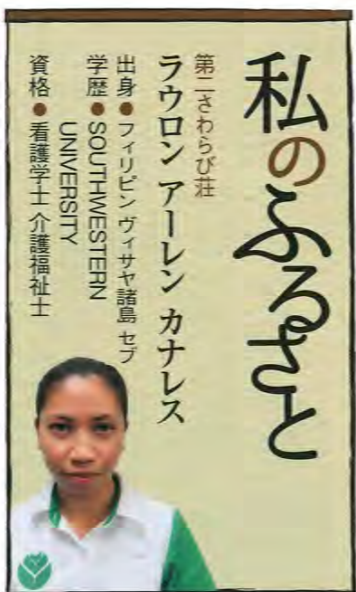 私のふるさと
第二さわらび荘
ラウロン アーレン カナレス
出身●フィリピン ヴィサヤ諸島 セブ
学歴●SOUTHWESTERN
UNIVERSITY
資格●看護学士 介護福祉士